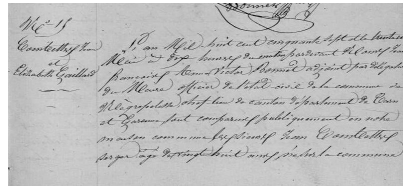 N° 15
Combettes Jean
et
Elizabeth Guilhard
L'an Mil huit cent cinquante sept et le
Mai à dix heures du matin pardevant
françois Jean Victor adjoint par délégation
du Maire officier de l'état civil de la commune de
Négrepelisse chef lieu de canton département de Tarn
et Garonne sont comparus publiquement en notre
maison commune les sieurs Jean Combettes
âgé de vingt huit ans la commune